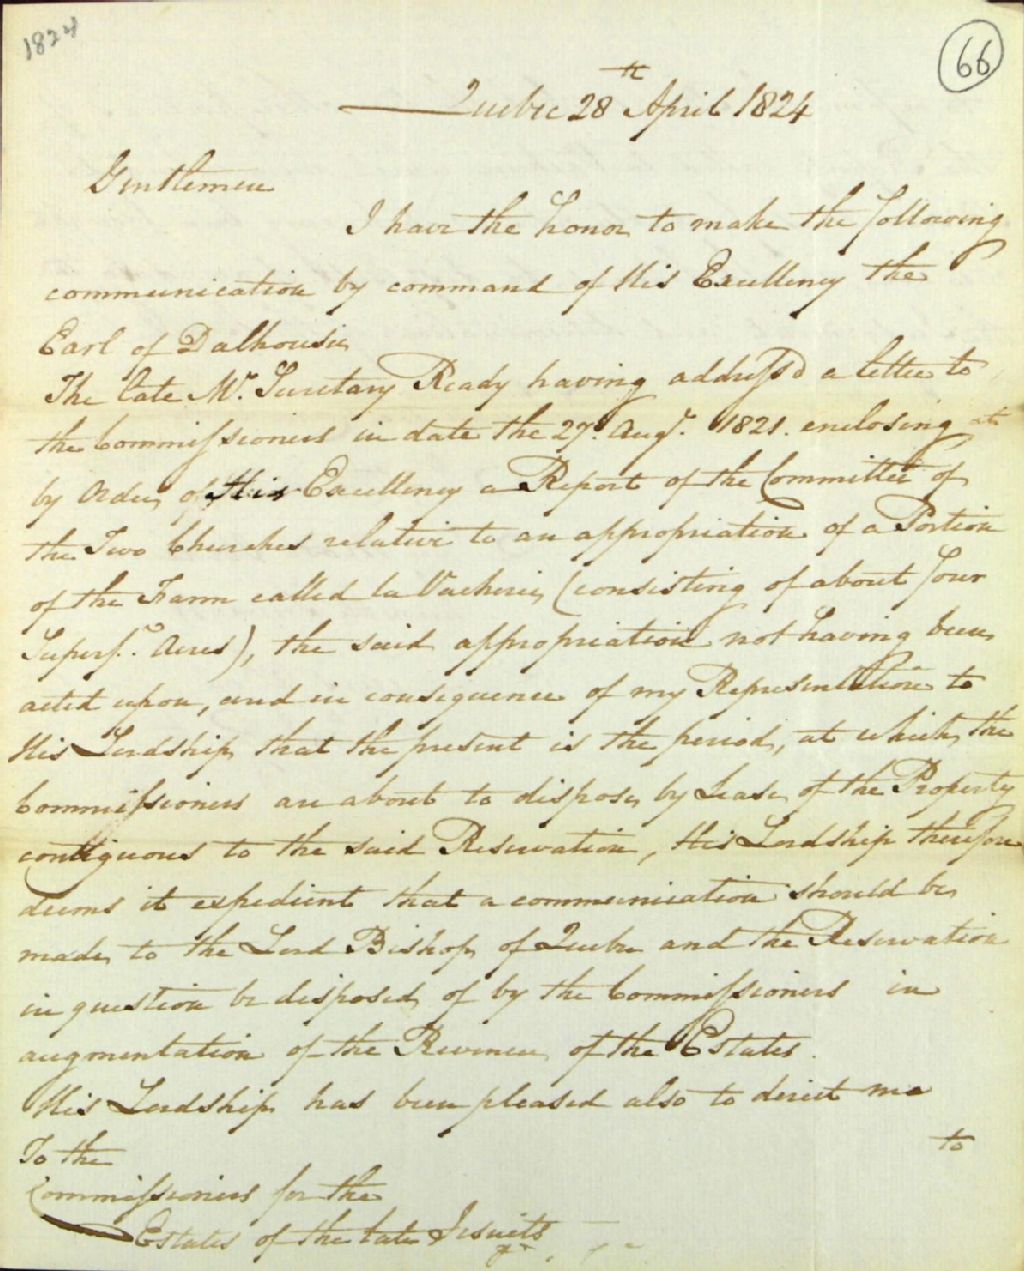 1824
66
Quebec 28th April 1824
Gentlemen
I have the honor to make the following
communication by command of His Excellency the
Earl of Dalhousie
The late Mr. Secretary Ready having address'd a letter to
the Commissioners in date the 27th Augt. 1821. enclosing
by Order of His Excellency a Report of the Committee of
the Two Churches relative to an appropriation of a Portion
of the Farm called la Vacherie, (consisting of about four
Superfl. Acres), the said appropriation not having been
acted upon, and in consequence of my Representation to
His Lordship that the present is the period, at which the
Commissioners are about to dispose by Lease of the Property
contiguous to the said Reservation, His Lordship therefore
deems it expedient that a communication should be
made to the Lord Bishop of Quebec and the Reservation
in question be disposed of by the Commissioners in
augmentation of the Revenue of the Estates.
His Lordship has been pleased also to direct me
to
To the
Commissioners for the
Estates of the late Jesuits